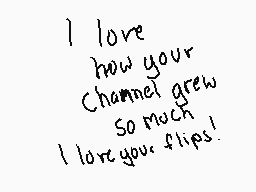 I love
how your
channel grew
so much
I love your flips!